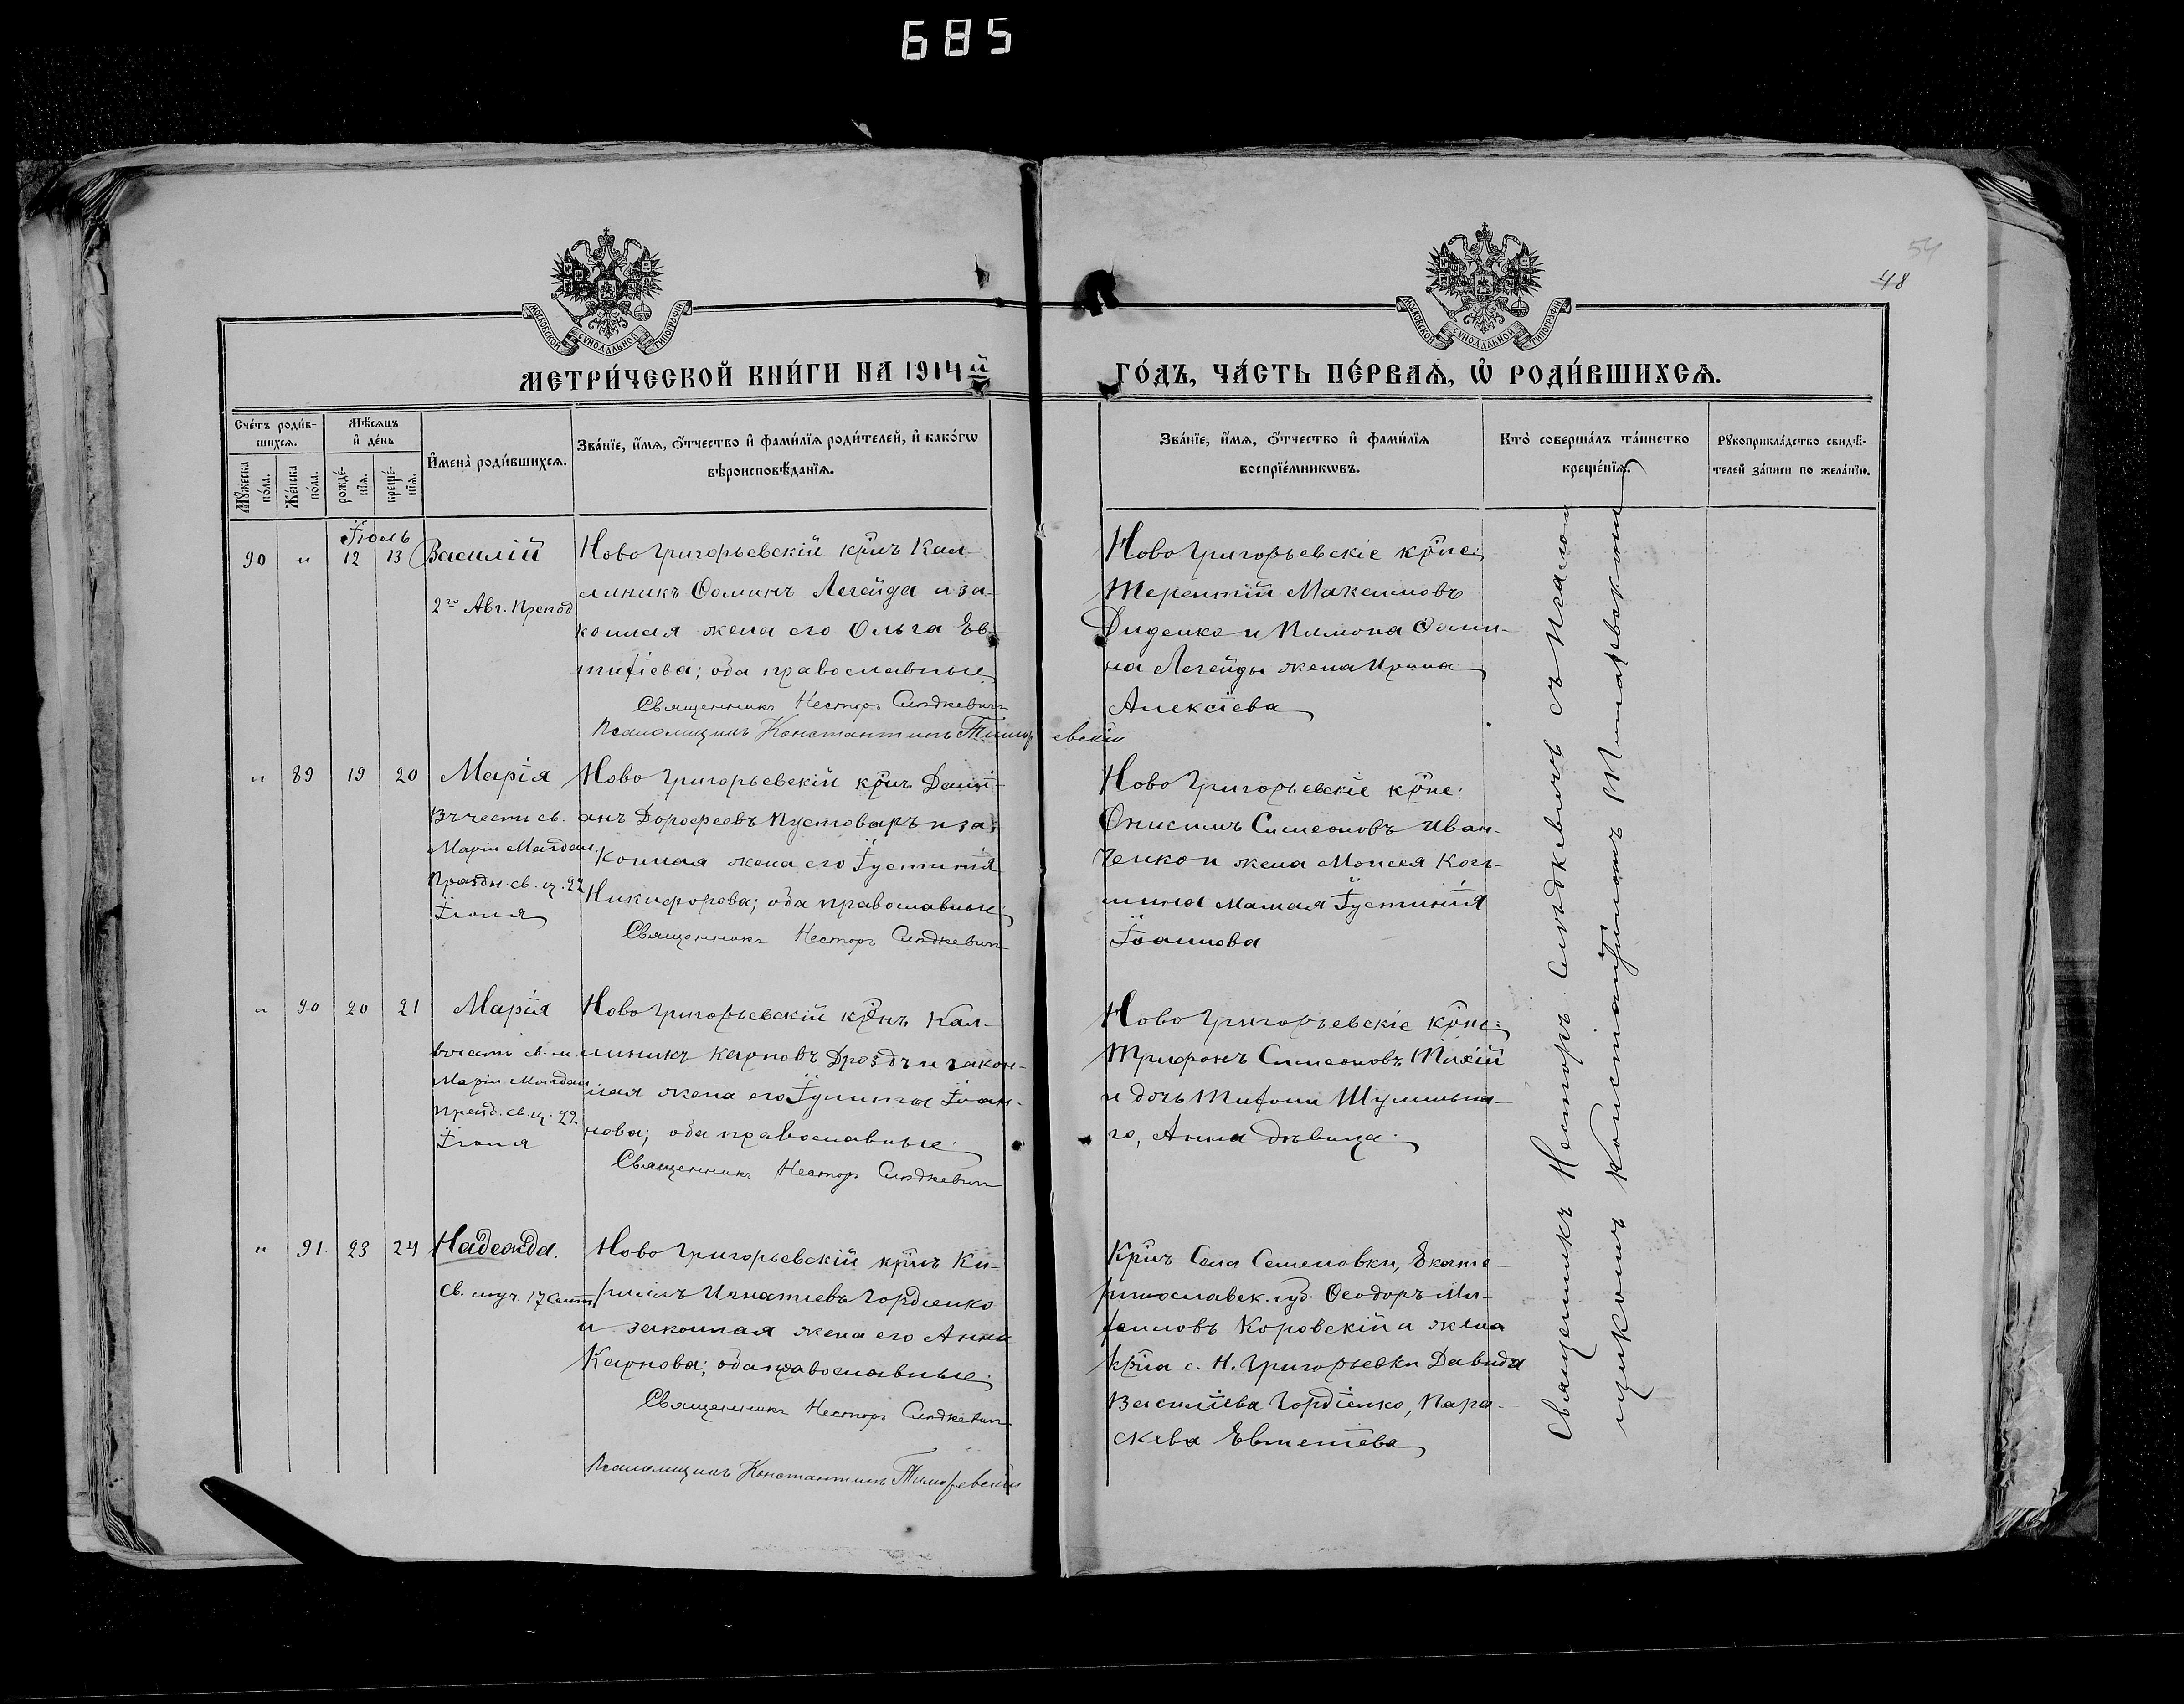 685
54
48
МОСКОВСКОЙ СѴНОДАЛЬНОЙ ТИПОГРАФІИ
МОСКОВСКОЙ СѴНОДАЛЬНОЙ ТИПОГРАФІИ
МЕТРИ́ЧЕСКОЙ КНИ́ГИ НА 1914 й
ГО́ДЪ, ЧА́СТЬ ПЕ́РВАѦ, Ѡ҆ РОДИ́ВШИХСѦ.
Сче́тъ роди́в-
шихсѧ.
Мѣ́сѧцъ
и҆ де́нь
Мꙋ́жеска
по́ла.
Же́нска
по́ла.
рожде́-
нїѧ.
креще́-
нїѧ.
И҆мена̀ роди́вшихсѧ.
Зва́нїе, и҆́мѧ, ѻ҆́тчество и҆ фами́лїѧ роди́телей, и҆ како́гѡ
вѣроисповѣ́данїѧ.
Зва́нїе, и҆́мѧ, ѻ҆́тчество и҆ фами́лїѧ
воспрїе́мникѡвъ.
Кто̀ соверша́лъ та́инство
креще́нїѧ.
Рꙋкоприкла́дство свидѣ́-
телей за́писи по жела́нїю.
Іюль
90 " 12 13 Василій
2го Авг. Препод
Ново Григорьевскій крнъ Кал-
линикъ Ѳоминъ Легейда и за-
конная жена его Ольга Ев-
тихіева; оба православные
Священникъ Несторъ Слѣдкевичъ
Псаломщикъ Константинъ Тимоѳевскій
Ново Григорьевскіе крне:
Терентій Максимовъ
Диденко и Пимона Ѳоми-
на Легейды жена Ирина
Алексіева
" 89 19 20 Марія
Въ честь св.
Маріи Магдал.
Праздн. св. ц. 22
Іюля
Ново Григорьевскій крнъ Даміі-
анъ Дороѳеевъ Пустоваръ и за-
конная жена его Іустинія
Никифорова; оба православные
Священникъ Несторъ Слѣдкевичъ
Ново Григорьевскіе крне:
Онисимъ Симеоновъ Иван-
ченко и жена Моисея Козь-
мина Мамая Іустинія
Іоаннова
" 90 20 21 Марія
въ честь св. м.
Маріи Магдал
Празд. св. ц. 22
Іюля
Ново Григорьевскій крнъ Кал-
линикъ Карповъ Дроздъ и закон-
ная жена его Іулитта Іоан-
нова; оба православные.
Священникъ Несторъ Слѣдкевичъ
Ново Григорьевскіе крне:
Трифонъ Симеоновъ Тихій
и дочь Тифона Шумильна-
го, Анна дѣвица.
" 91 23 24 Надежда.
Св. муч. 17 Сент
Ново Григорьевскій крнъ Ки-
риллъ Игнатіевъ Гордіенко
и законная жена его Анна
Карпова; оба православные.
Священникъ Несторъ Слѣдкевичъ
Псаломщикъ Константинъ Тимоѳевскій
Крнъ Села Семеновки, Екате-
ринославск. губ. Ѳеодоръ
Коровскій и жена
крна с. Н. Григорьевки Давида
Василіева Гордіенко, Пара-
скева Евменіева
Священникъ Несторъ Слѣдкевичъ съ Псалом
щикомъ Константиномъ Тимоѳевскимъ